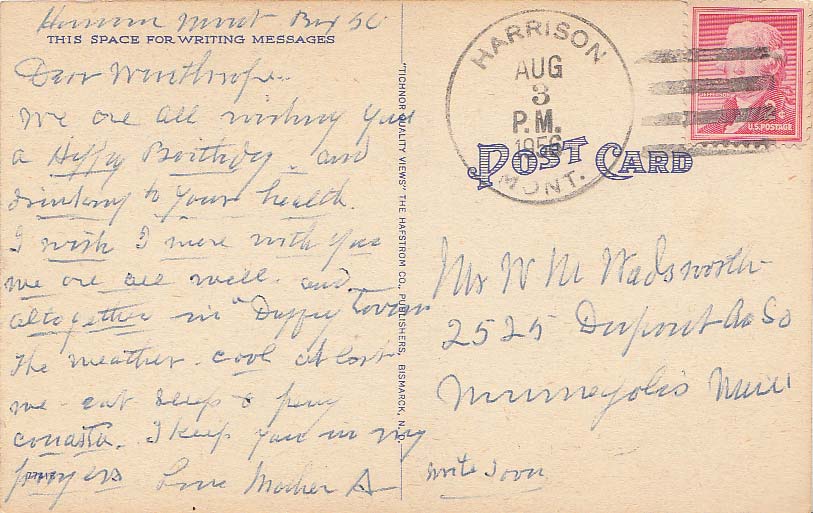 Harrison Mont Box 56
THIS SPACE FOR WRITING MESSAGES
Dear Winthrope..
We are all wishing you
a Happy Birthday - and
drinking to your health.
I wish I were with you
we are all well - and
altogether in "Duffys Tavern
The weather - cool at last
we - eat sleep & play
canasta. I keep you in my
prayers Love Mother A
"TICHNOR QUALITY VIEWS" THE HAFSTROM CO., PUBLISHERS, BISMARCK, N.D.
HARRISON
AUG
3
P.M.
1956
MONT.
2¢
U.S. POSTAGE
POST CARD
Mr W M Wadsworth
2525 Dupont Av So
Minneapolis Minn
write soon